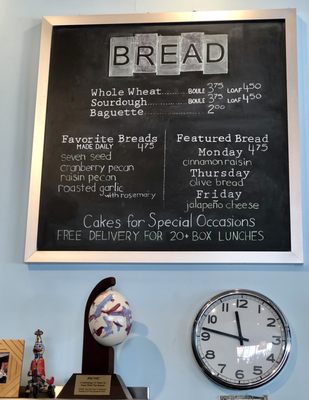 BREAD
Whole Wheat........ BOULE 3.75 LOAF 4.50
Sourdough........ BOULE 3.75 LOAF 4.50
Baguette........ 2.00
Favorite Breads
MADE DAILY 4.75
seven seed
cranberry pecan
raisin pecan
roasted garlic
with rosemary
Featured Bread
4.75
Monday
cinnamon raisin
Thursday
olive bread
Friday
jalapeño cheese
Cakes for Special Occasions
FREE DELIVERY FOR 20+ BOX LUNCHES
12
1
2
3
4
5
6
7
8
9
10
11